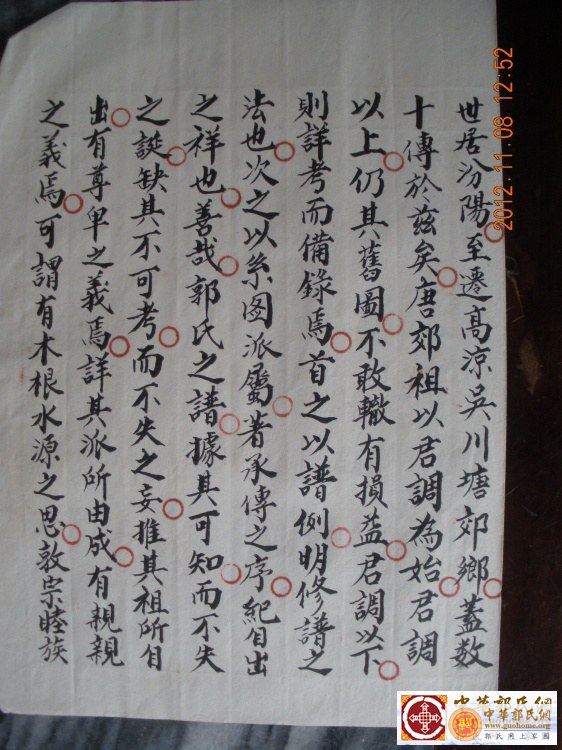 世居汾陽至遷高涼吳川塘郊鄉蓋数
十傳於茲矣唐郊祖以君調為始君調
以上仍其舊圖不敢轍有損益君調以下
則詳考而備錄焉首之以譜例明修譜之
法也次之以系图派屬著承傳之序紀自出
之祥也善哉郭氏之譜據其可知而不失
之誕缺其不可考而不失之妄推其祖所自
出有尊卑之義焉詳其派所由成有親親
之義焉可謂有木根水源之思敦崇睦族
2012.11.08 12:52
中華郭氏網
www.guohome.org
郭氏網上家園
中華郭氏網